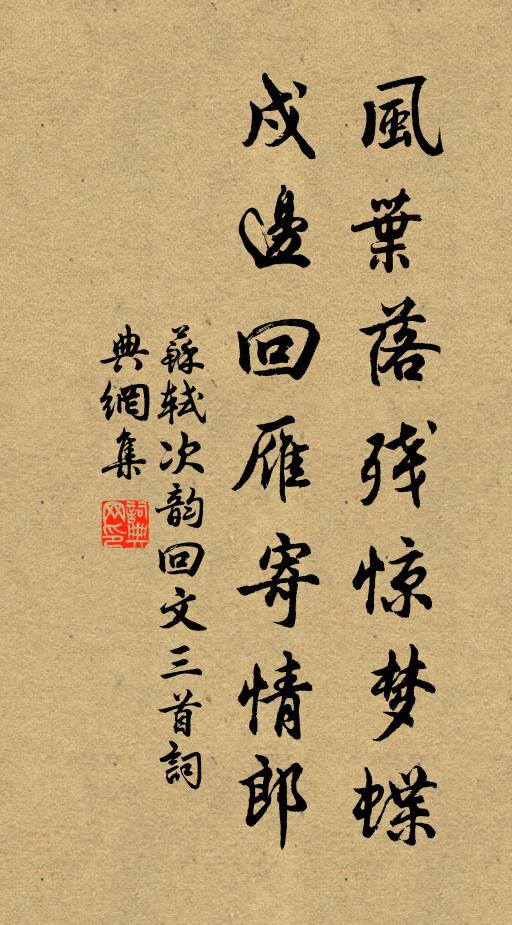 風葉落残惊梦蝶
戍邊回雁寄情郎
蘇轼次韵回文三首詞
典網集
詞典網印